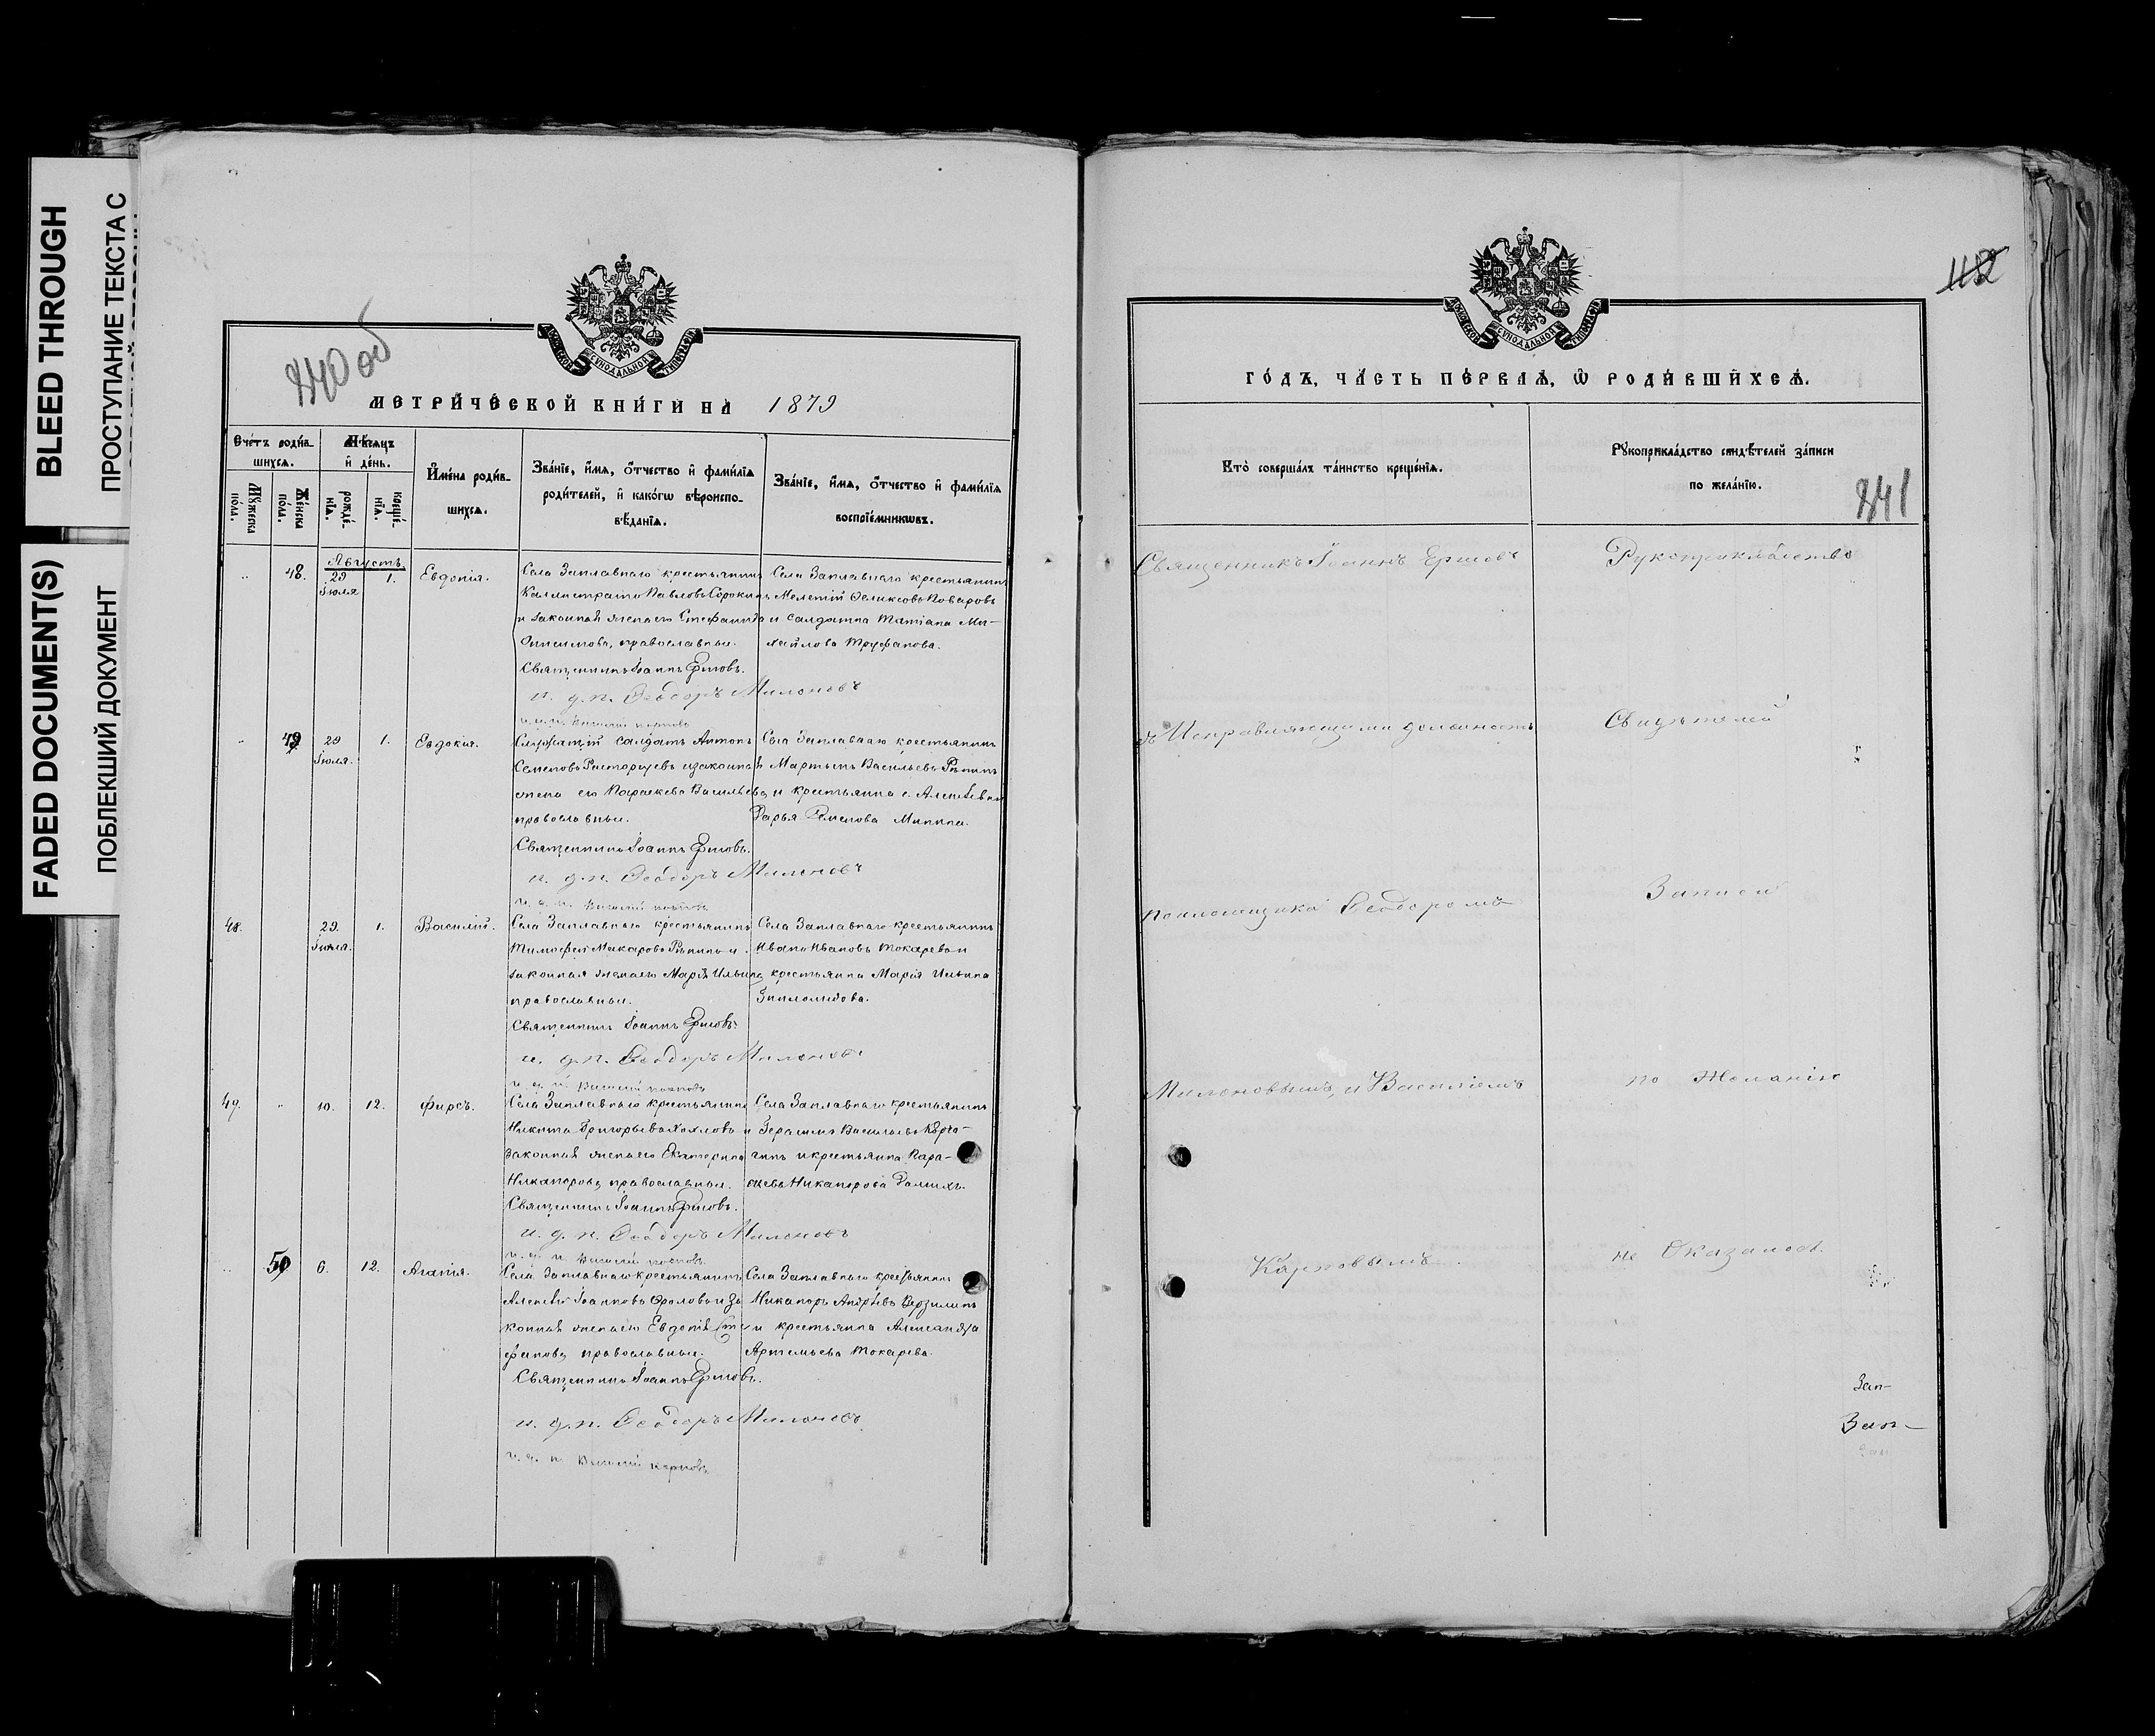 BLEED THROUGH
ПРОСТУПАНИЕ ТЕКСТА С
FADED DOCUMENT(S)
ПОБЛЕКШИЙ ДОКУМЕНТ
840 об
МЕТРИЧЕСКОЙ КНИГИ НА 1879
Счетъ родив-
шихся.
Мѣсяцъ
и день.
Имена родив-
шихся.
Званіе, имя, отчество и фамилія
родителей, и какогѡ вѣроиспо-
вѣданія.
Званіе, имя, отчество и фамилія
воспріемникѡвъ.
Мужеска
пола.
Женска
пола.
рожде-
нія.
креще-
нія.
Августъ.
48. 29 Іюля 1. Евдокія.
Села Заплавнаго крестьянинъ
Каллистратъ Павловъ Сорокинъ
и законная жена его Стефанида
Онисимова, православные.
Священникъ Іоаннъ Ершовъ.
и. д. п. Ѳеодоръ Милоновъ
Села Заплавнаго крестьянинъ
Мелетій Феликсовъ Поваровъ
и солдатка Татіана Ми-
хайлова Труфанова.
49 29 Іюля. 1. Евдокія.
Служащій солдатъ Антонъ
Семеновъ Расторгуевъ и законная
жена его Параскева Васильева
православные.
Священникъ Іоаннъ Ершовъ.
и. д. п. Ѳеодоръ Милоновъ
Села Заплавнаго крестьянинъ
Мартынъ Васильевъ Рѣпинъ
и крестьянка с. Алексѣевки
Дарья Семенова Минина.
48. 29. Іюля. 1. Василій.
Села Заплавнаго крестьянинъ
Тимофей Макаровъ Рѣпинъ и
законная жена его Марія Ильина
православные.
Священникъ Іоаннъ Ершовъ.
и. д. п. Ѳеодоръ Милоновъ
Села Заплавнаго крестьянинъ
Иванъ Ивановъ Токаревъ и
крестьянка Марія Ильина
49. 10. 12. Фирсъ.
Села Заплавнаго крестьянинъ
Никита Григорьевъ Хохловъ и
законная жена его Екатерина
Никанорова православные.
Священникъ Іоаннъ Ершовъ.
и. д. п. Ѳеодоръ Милоновъ
Села Заплавнаго крестьянинъ
Герасимъ Васильевъ Корча-
гинъ и крестьянка Пара-
скева Никанорова
50 6. 12. Агапія.
Села Заплавнаго крестьянинъ
Алексѣй Іоанновъ Фроловъ и за
конная жена его Евдокія Сте
фанова православные.
Священникъ Іоаннъ Ершовъ.
и. д. п. Ѳеодоръ Милоновъ
и. д. п. Василій Карповъ
Села Заплавнаго крестьянинъ
Никаноръ Андрѣевъ Верзилинъ
и крестьянка Александра
Артемьева Токарева.
112
ГОДЪ, ЧАСТЬ ПЕРВАЯ, Ѡ РОДИВШИХСЯ.
Кто совершалъ таинство крещенія.
Рукоприкладство свидѣтелей записи
по желанію.
841
Священникъ Іоаннъ Ершовъ
съ Исправляющими должность
псаломщика Ѳеодоромъ
Милоновымъ, и Василіемъ
Карповымъ.
Рукоприкладство
Свидѣтелей
Записи
по Желанію
не Оказалось.
Зап-
Зап-